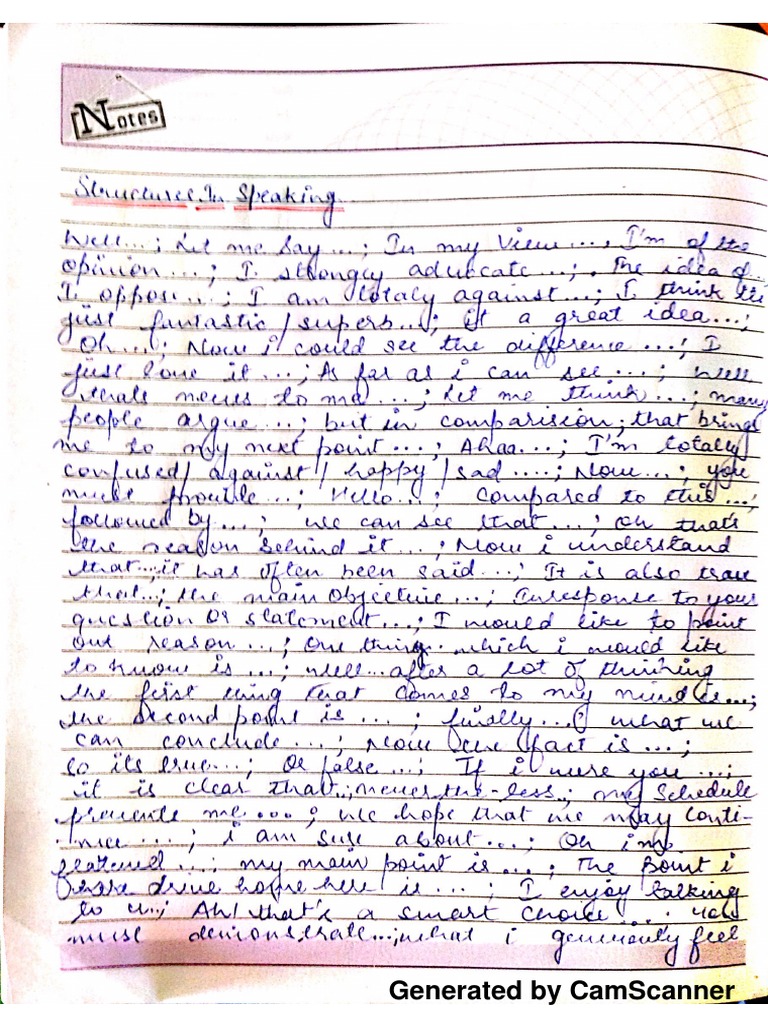 Notes
Structures In Speaking
Well...; Let me say...; In my view..., I'm of the
opinion...; I strongly advocate...; The idea of..
I oppose...; I am totaly against...; I think its
just fantastic/superb...; its a great idea...;
Oh...; Now i could see the difference...; I
just love it...; As far as i can see...; Well
thats news to me...; Let me think...; many
people argue...; but in comparision; that brings
me to my next point...; Ahaa...; I'm totally
confused/against/happy/sad....; Now...; you
must provide...; Hello...; Compared to this...;
followed by...; we can see that...; Oh that's
the reason behind it...; Now i understand
that...; it has often been said...; It is also true
that...; the main objective...; In response to your
question or statement...; I would like to point
out reason...; One thing which i would like
to know is...; well...after a lot of thinking
the first thing that comes to my mind is...;
the second point is...; finally...; what we
can conclude...; Now the fact is...;
so its true...; Or false...; If i were you...;
it is clear that..; never-the-less..; my schedule
prevents me...; we hope that we may conti-
nue...; i am sure about...; Oh i'm
...; my main point is...; The point i
drive home here is...; I enjoy talking
to u..; Ah! that's a smart choice...; you
must demonstrate...; what i genuinely feel
Generated by CamScanner